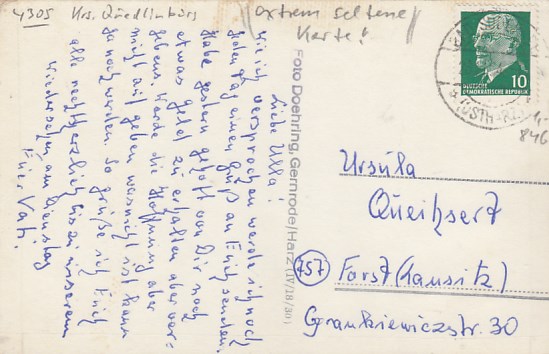 4305 Krs. Quedlinburg
(extrem seltene
Karte!
Liebe Ulla!
Wie ich versprochen werde ich noch
jeden Tag einen Gruß an Euch senden.
Habe gestern gehofft von Dir noch
etwas Geld zu erhalten aber ver=
gebens. Werde die Hoffnung aber
nicht auf geben was nicht ist kann
ja noch werden. So grüße ich Euch
alle recht herzlich bis zu unserem
Wiedersehen am Dienstag
Euer Vati.
Foto Doehring, Gernrode/Harz (IV/18/80)
DEUTSCHE
DEMOKRATISCHE REPUBLIK
10
(OSTH
846
Ursula
Queihsert
(757) Forst (Lausitz)
Frankiewiczstr. 30